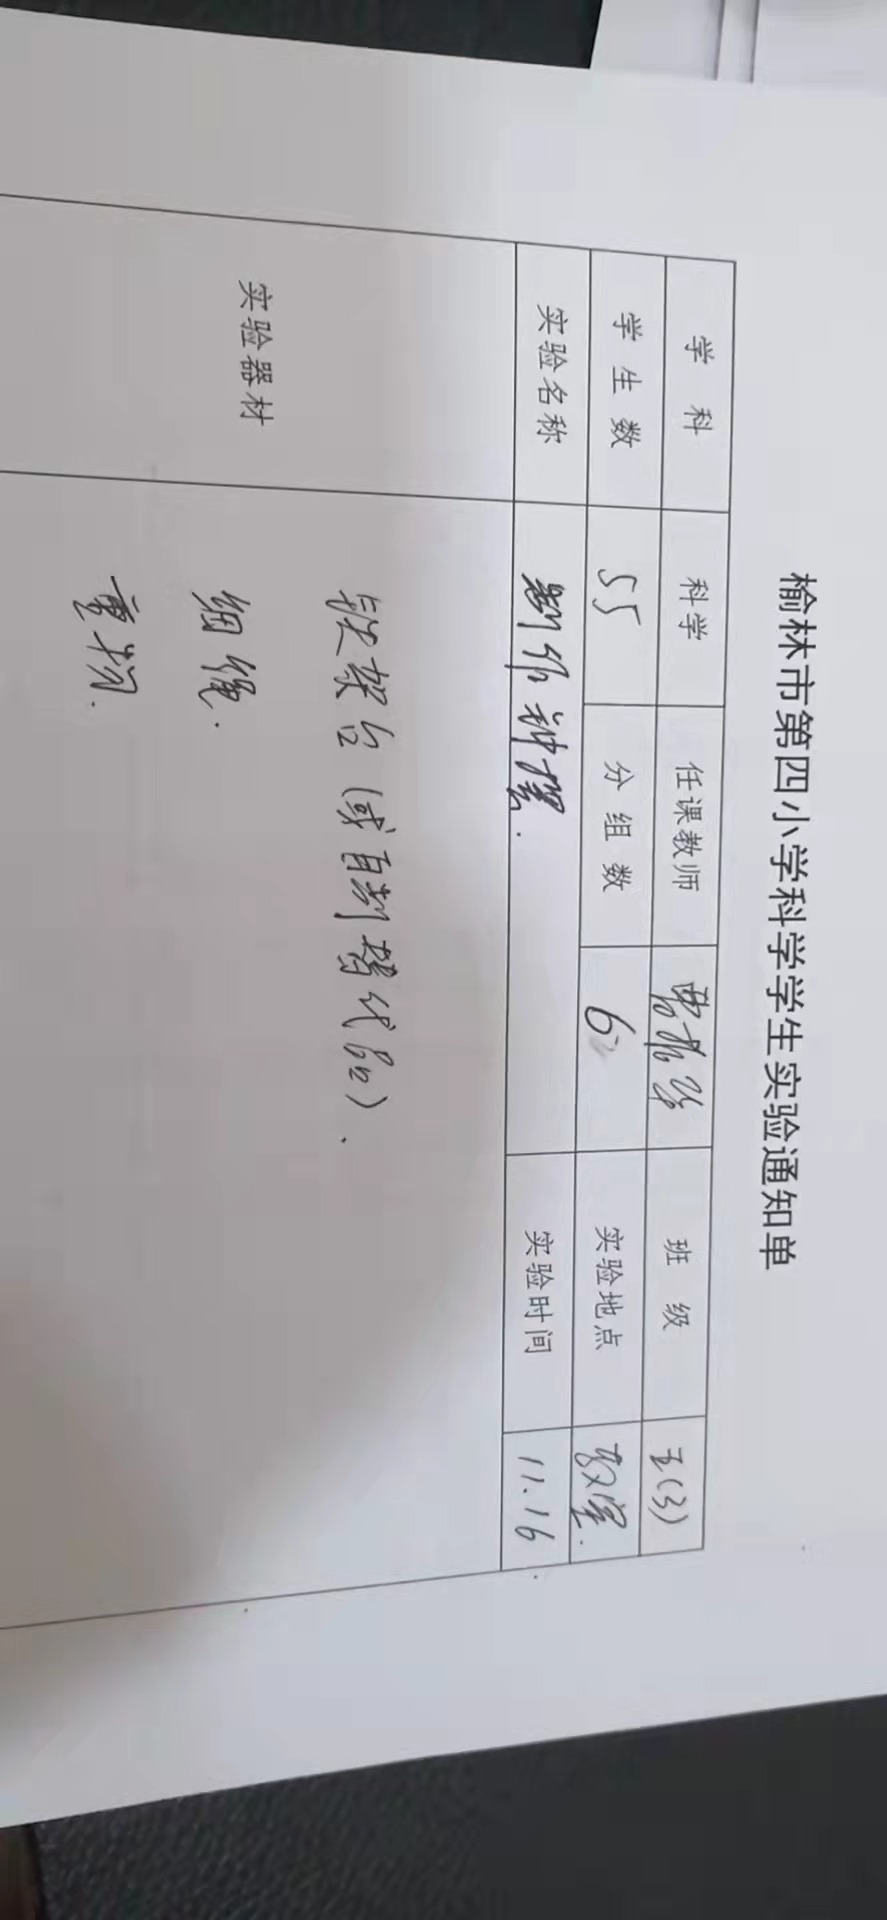 榆林市第四小学科学学生实验通知单
学科 科学 任课教师 班级 五(3)
学生数 55 分组数 6 实验地点 教室.
实验名称 制作钟摆. 实验时间 11.16
实验器材 铁架台(或自制替代品)、
细绳.
重物.